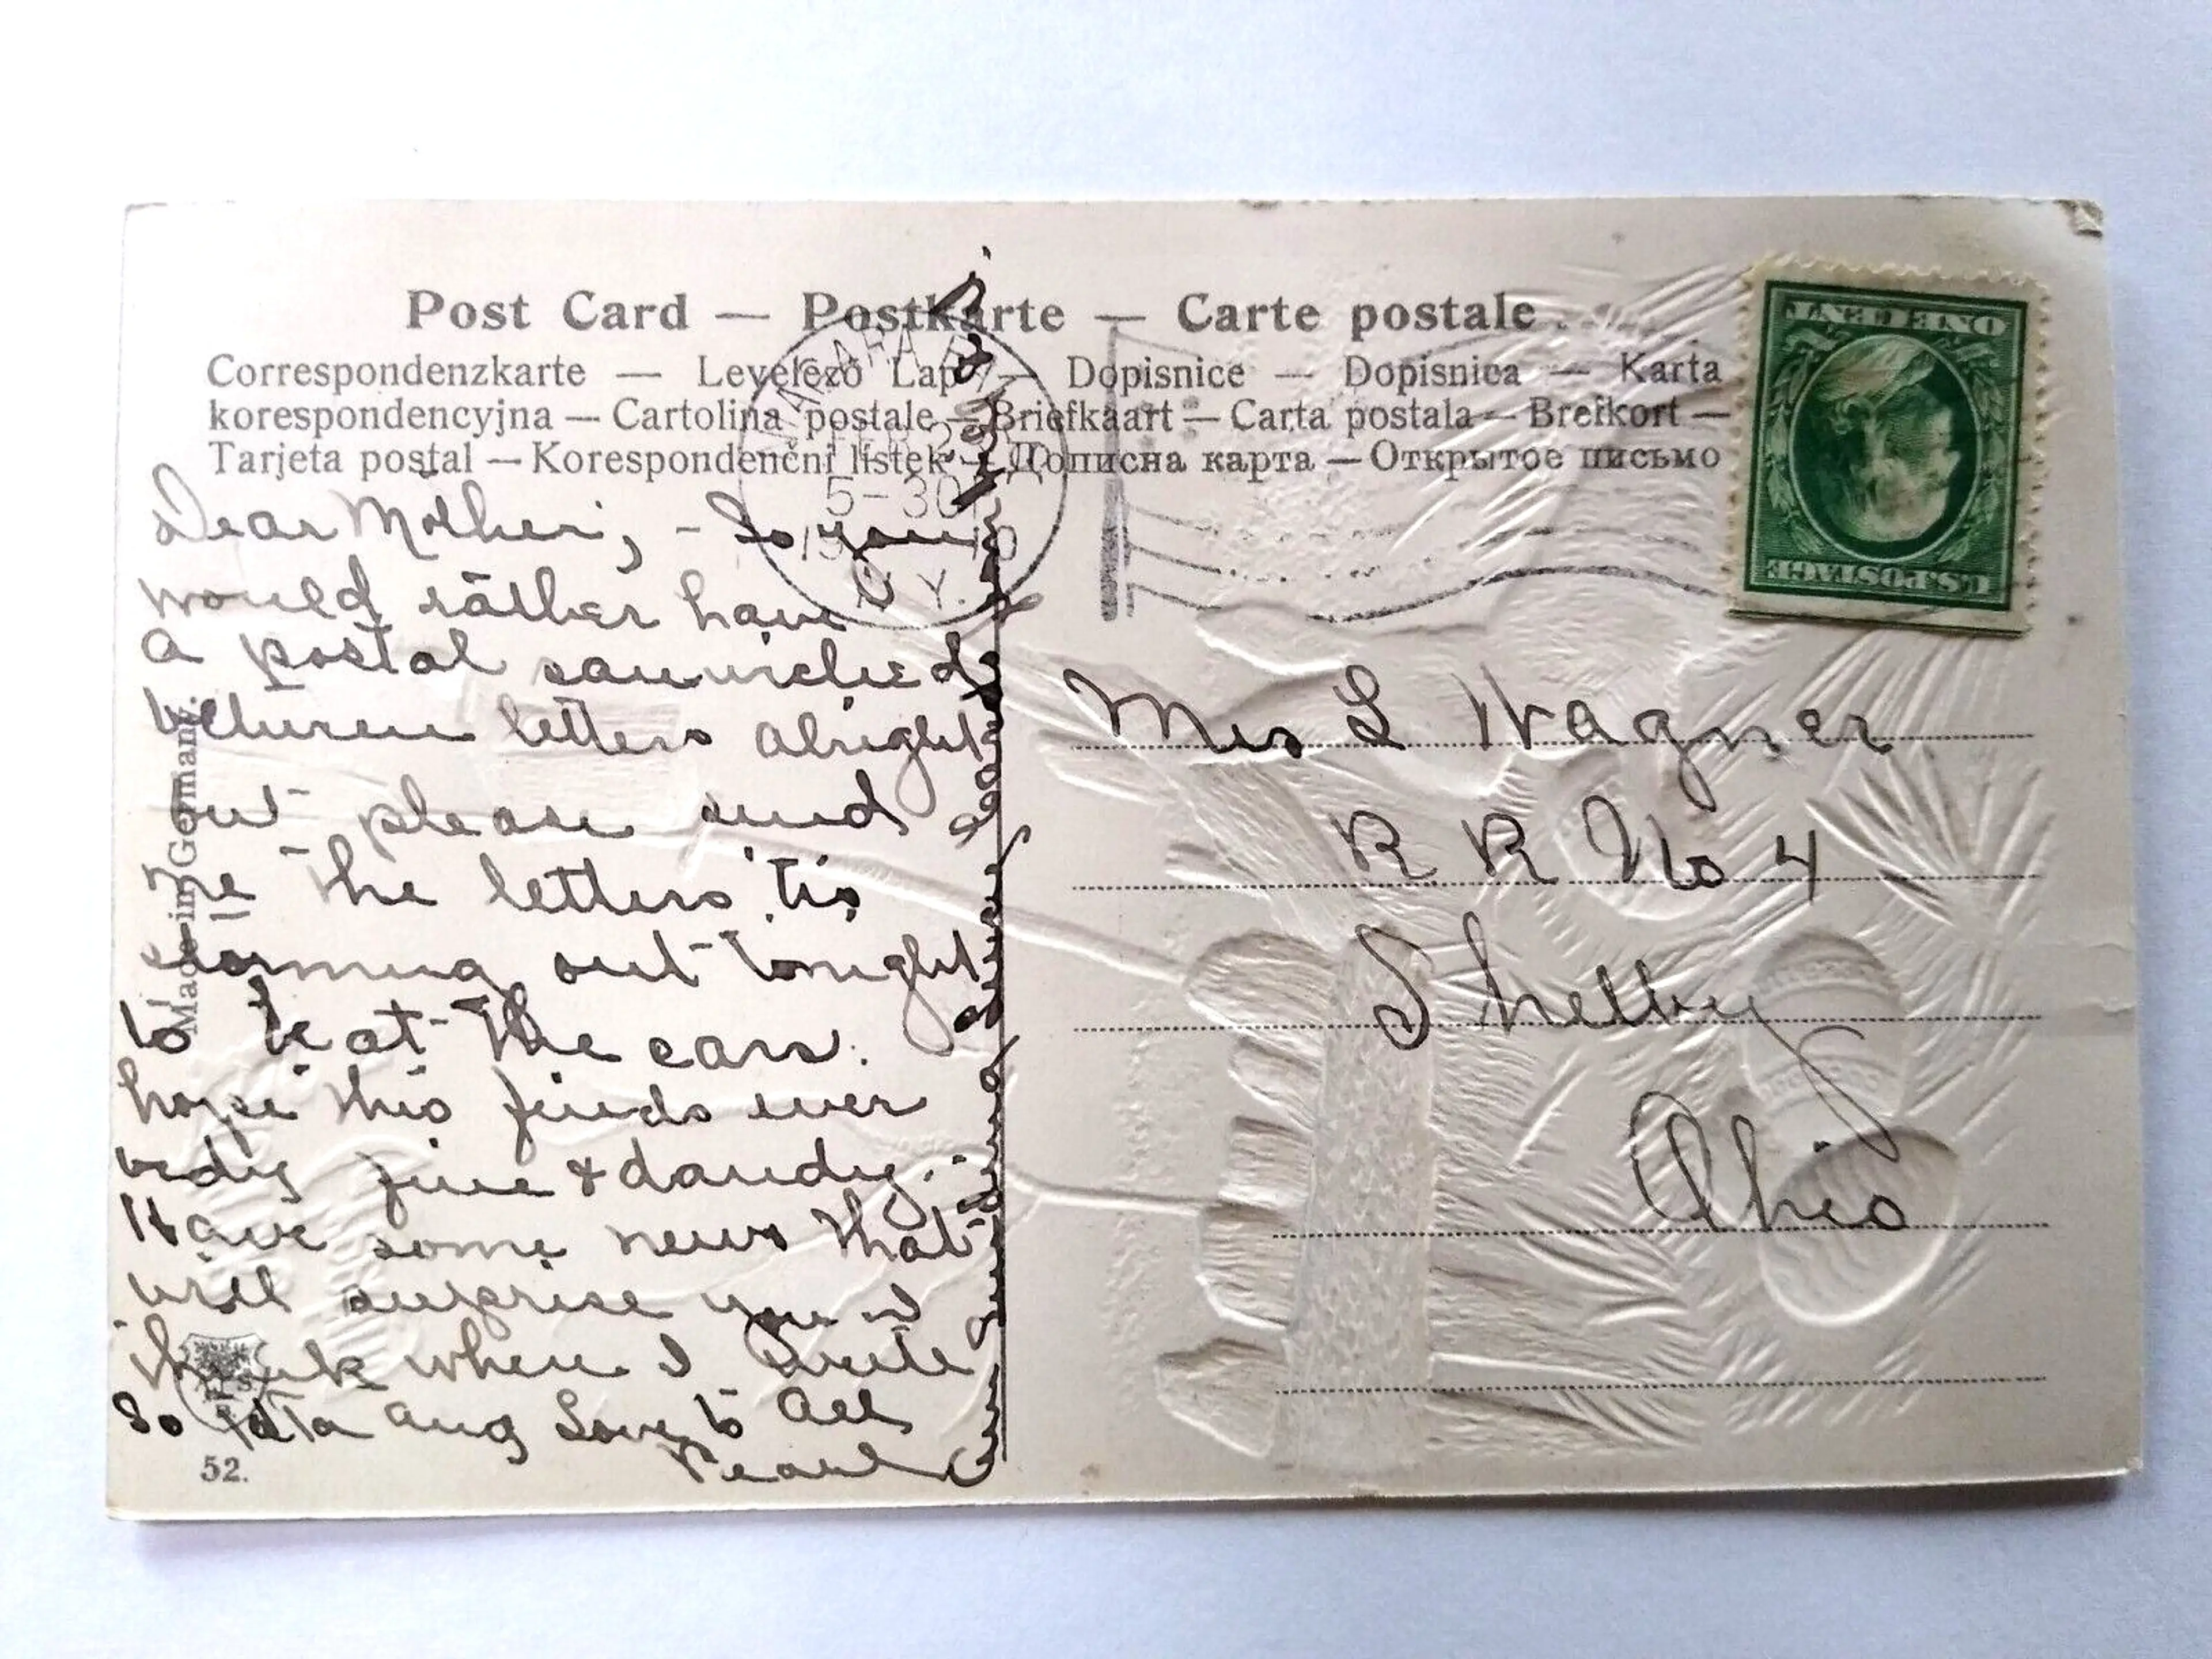 Post Card — Postkarte — Carte postale
Correspondenzkarte — Levelező Lap — Dopisnice — Dopisnica — Karta
korespondencyjna — Cartolina postale — Briefkaart — Carta postala — Brefkort —
Tarjeta postal — Korespondenčni listek — Дописна карта — Открытое письмо
NIAGARA FALLS
FEB 2
5-30
1910
N.Y.
ONE CENT
U.S. POSTAGE
Dear Mother, - So you
would rather have
a postal sanwiched
between letters alright
but please send
me the letters tis
storming out tonight
to beat the cars.
hope this finds ever
body fine & dandy.
Have some news that
will surprise you I
think when I write
So ta ta Aug Love to all
Pearl
Made in Germany.
52.
Mrs L Wagner
R R No 4
Shelby
Ohio